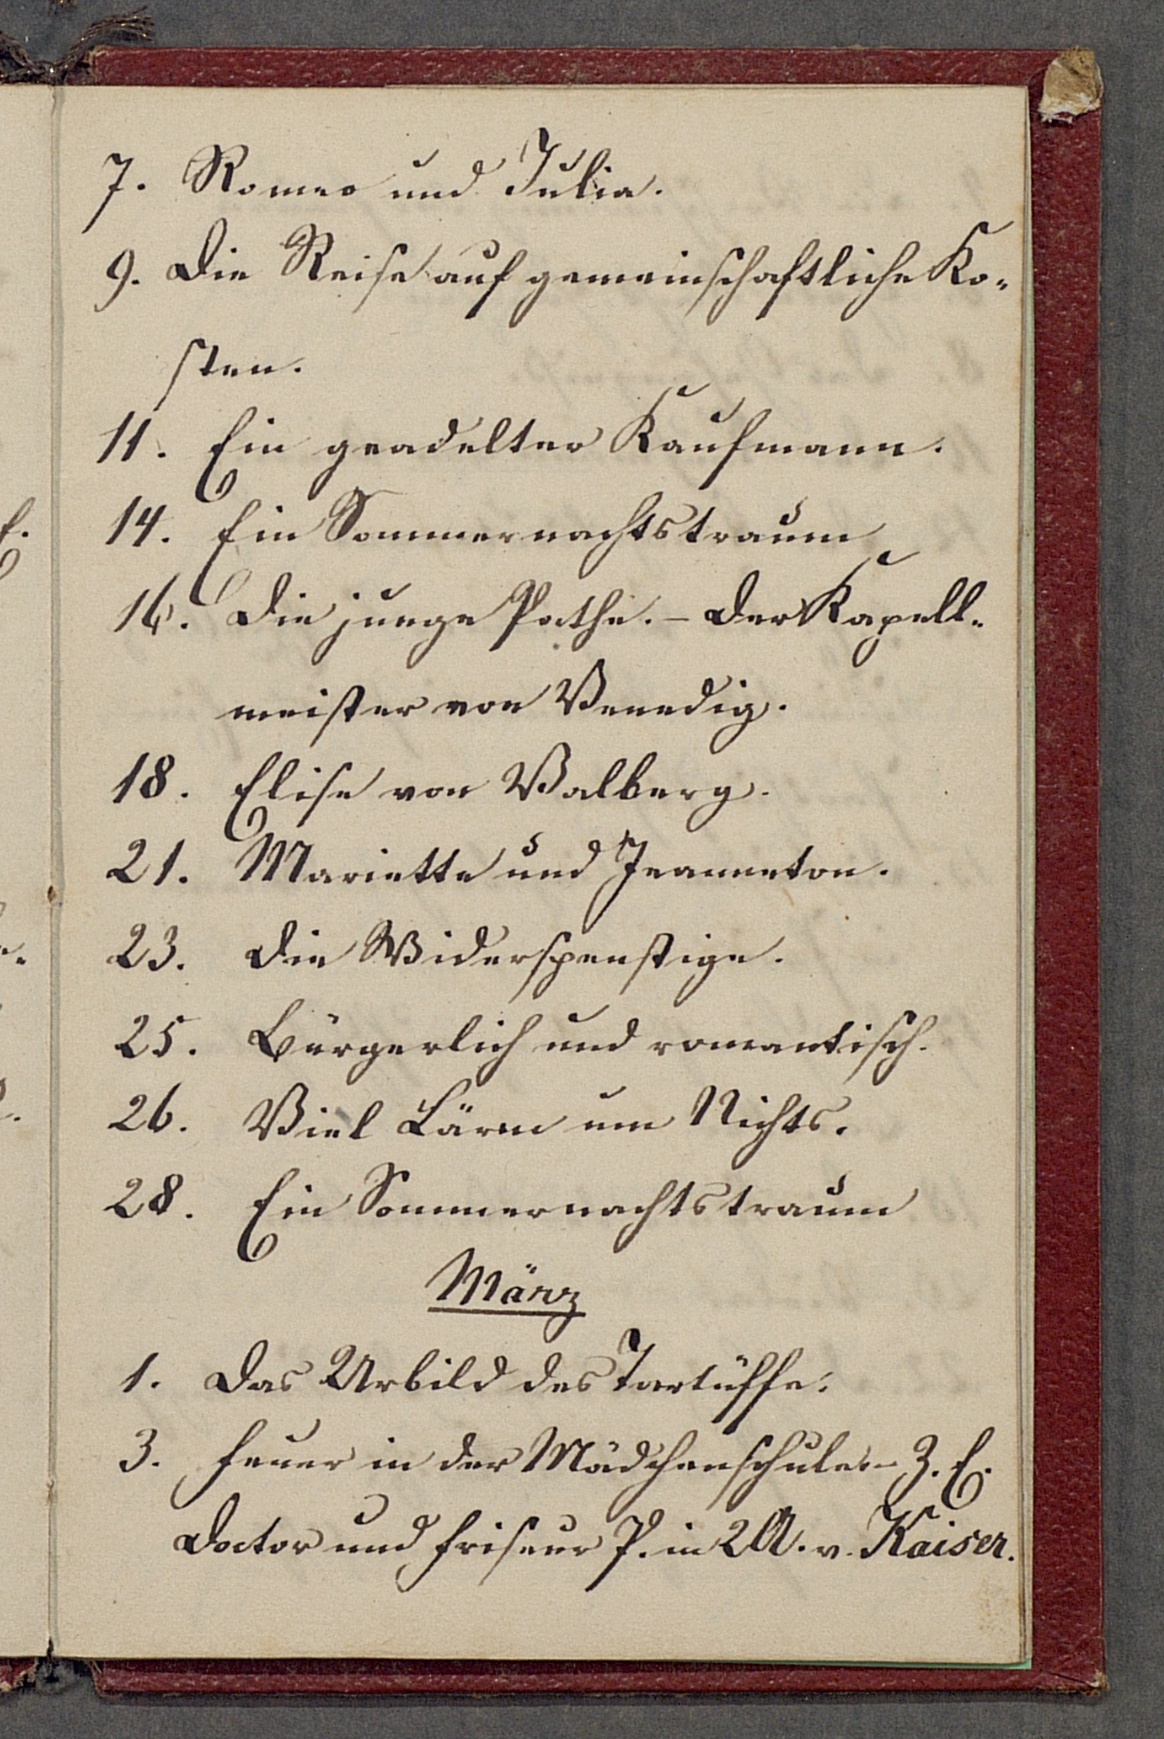 7. Romeo und Julia.
9. Die Reise auf gemeinschaftliche Ko-
sten.
11. Ein geadelter Kaufmann.
14. Ein Sommernachtstraum
16. Die junge Pathe. - Der Kapell-
meister von Venedig.
18. Elise von Valberg.
21. Mariette und Jeanneton.
23. Die Widerspenstige.
25. Bürgerlich und romantisch.
26. Viel Lärm um Nichts.
28. Ein Sommernachtstraum
März
1. Das Urbild des Tartüffe.
3. Feuer in der Mädchenschule. - Z. E.
Doctor und Friseur P. in 2 A. v. Kaiser.